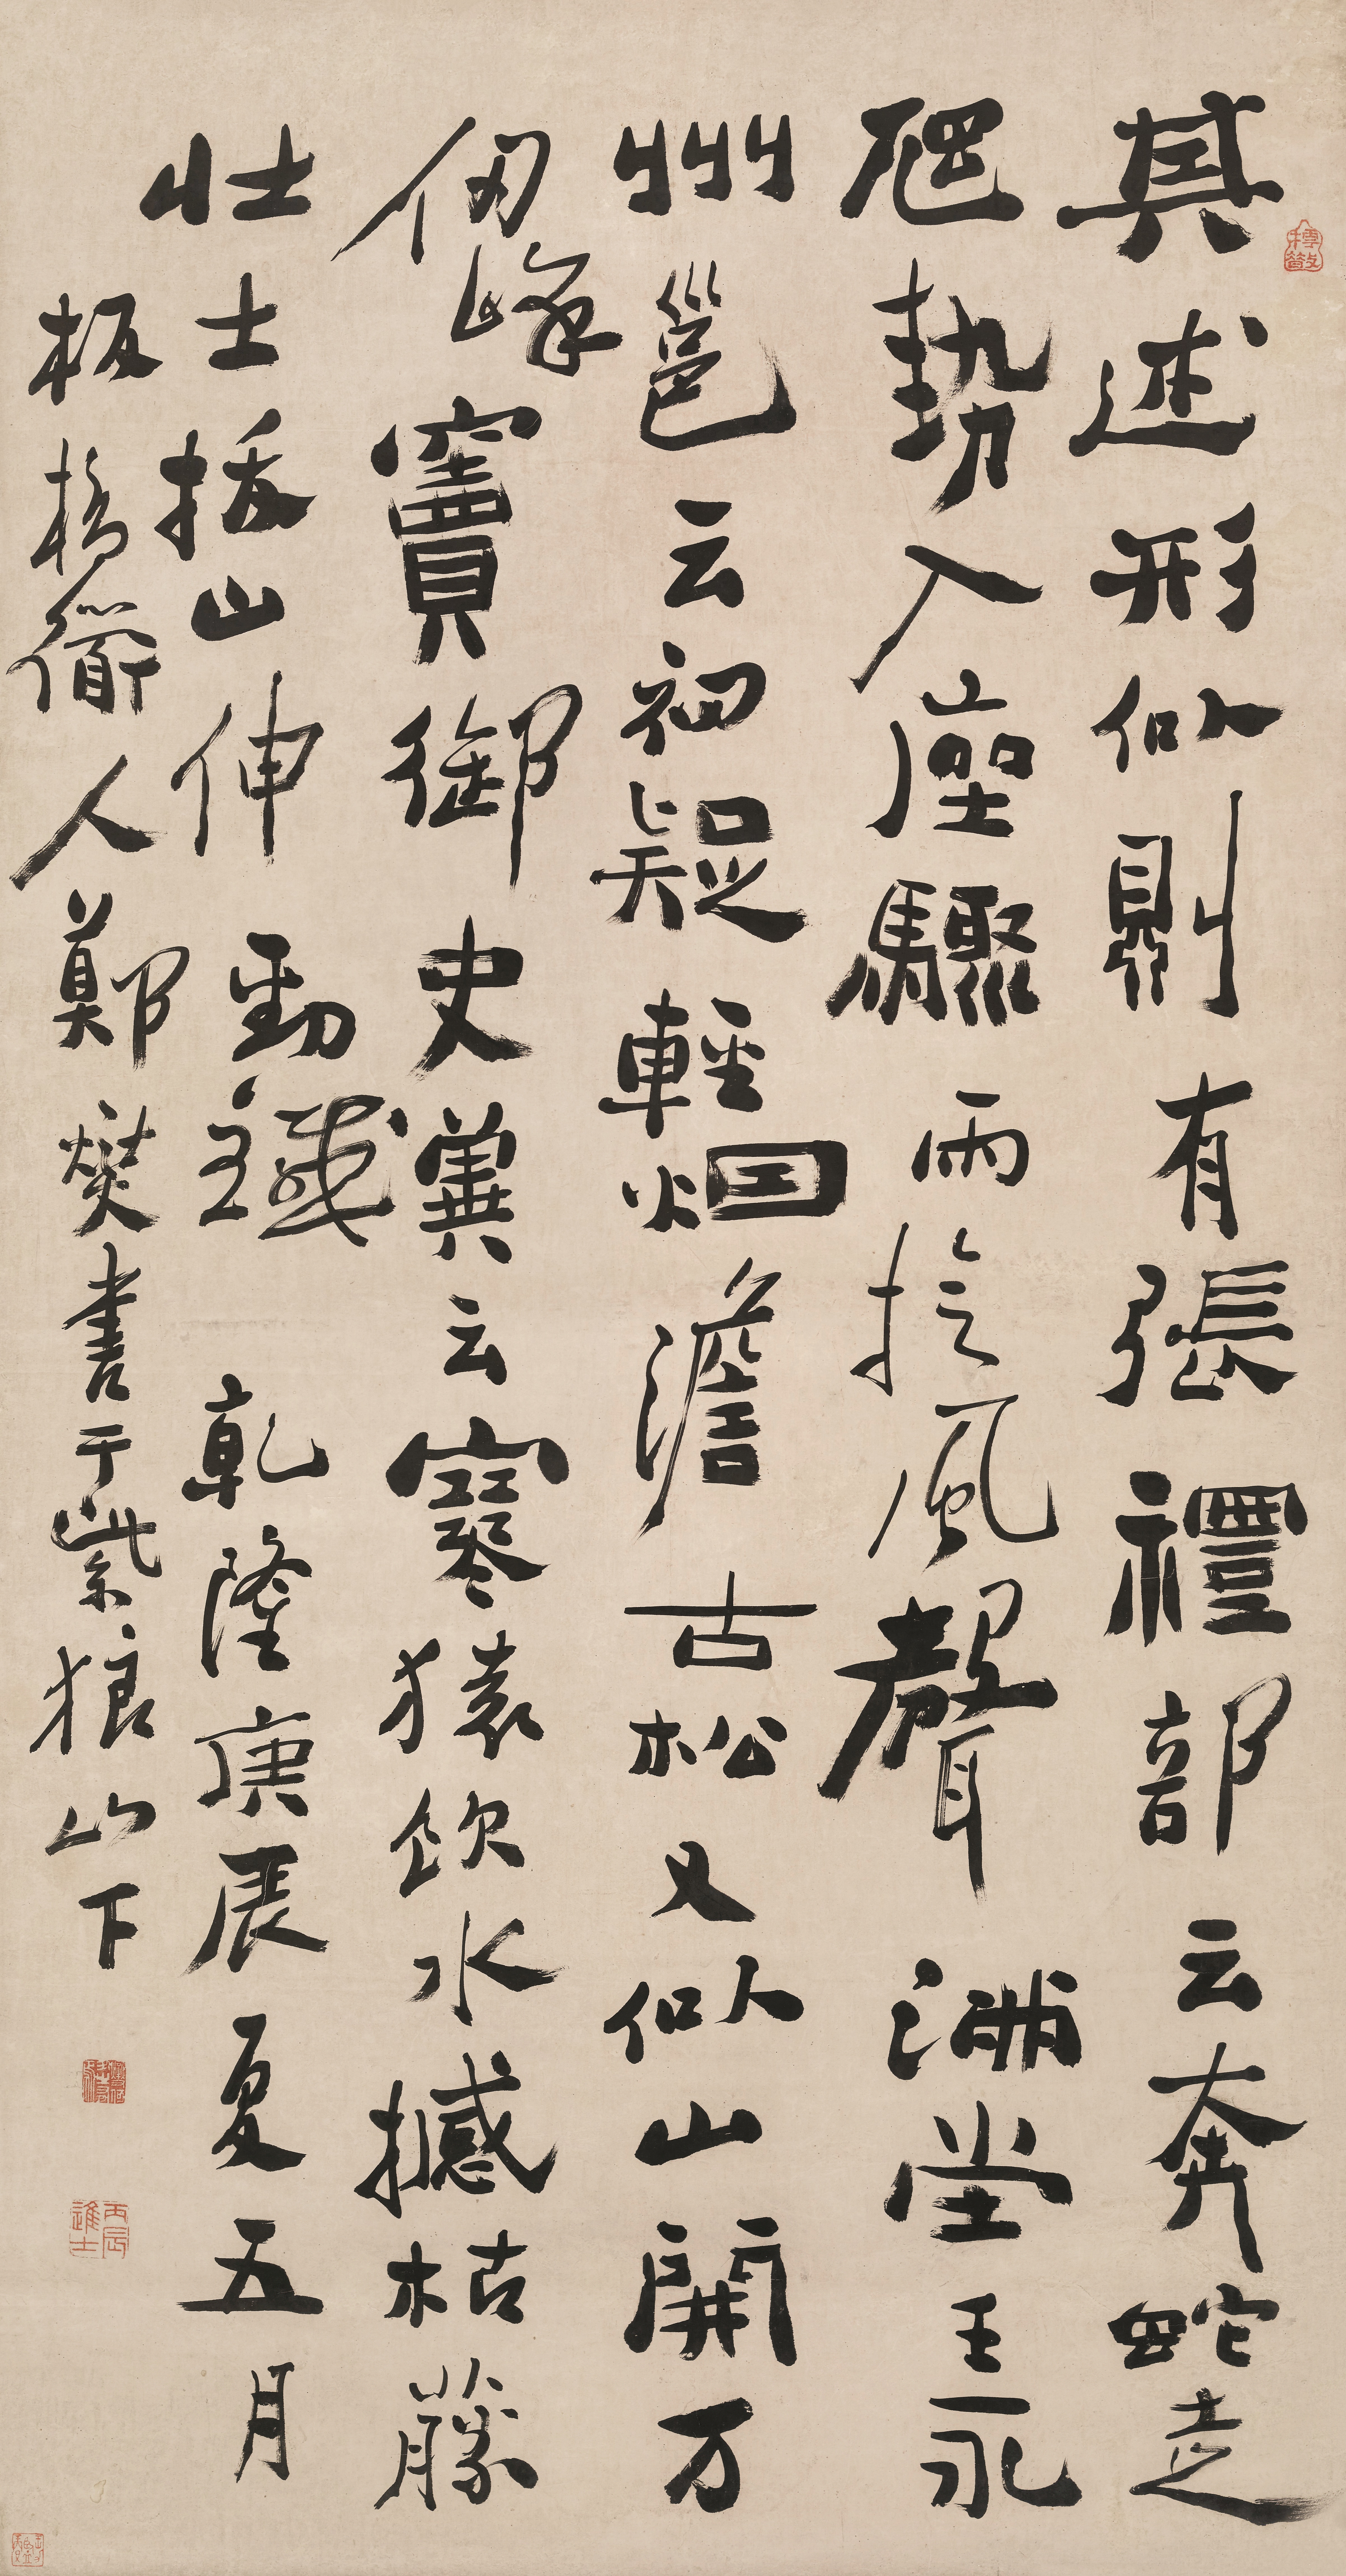 其述形似則有張禮部云奔蛇走
虺勢入座驟雨旋風聲滿堂王永
州邕云初疑輕烟澹古松又似山開万
仞峰竇御史兾云寒猿飲水撼枯藤
壯士拔山伸勁鐵乾隆庚辰夏五月
板橋衜人鄭燮書于紫狼山下
丙辰進士